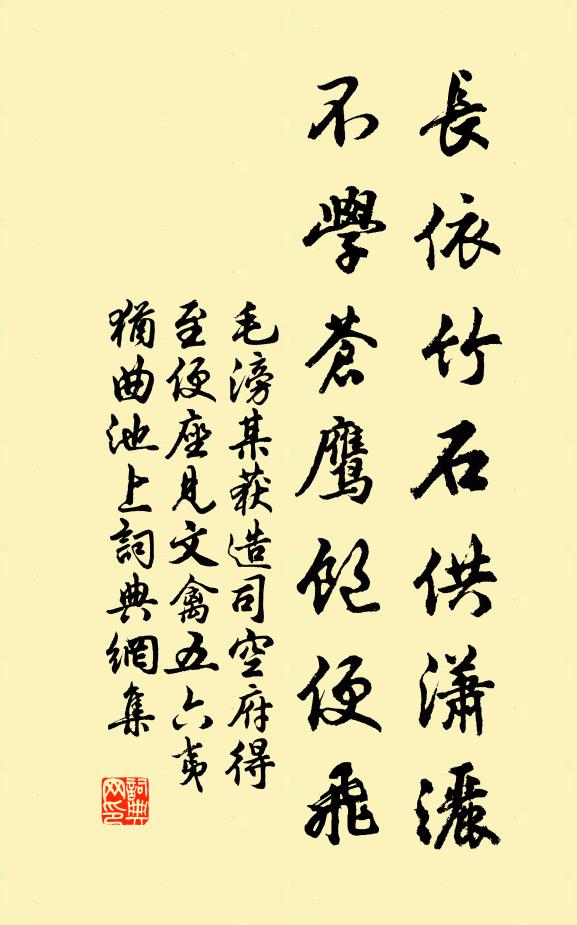 長依竹石供瀟灑
不學蒼鷹飽便飛
毛滂某获造司空府得
至便座見文禽五六夷
猶曲池上詞典網集
詞典
网印